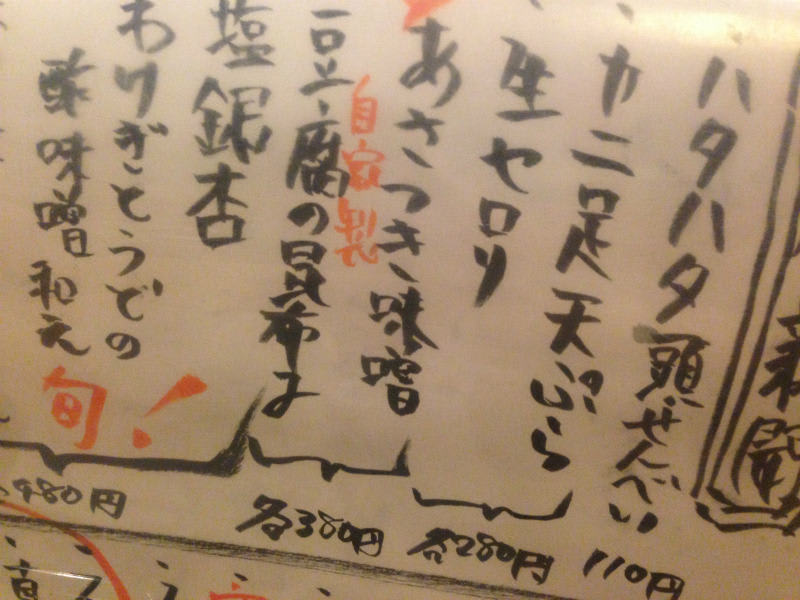 ハタハタ頭せんべい
110円
カニ足天ぷら
生セロリ
各280円
あさつき味噌
自家製
豆腐の昆布よ
各380円
塩銀杏
わけぎとうどの
酢味噌和え
旬!
480円